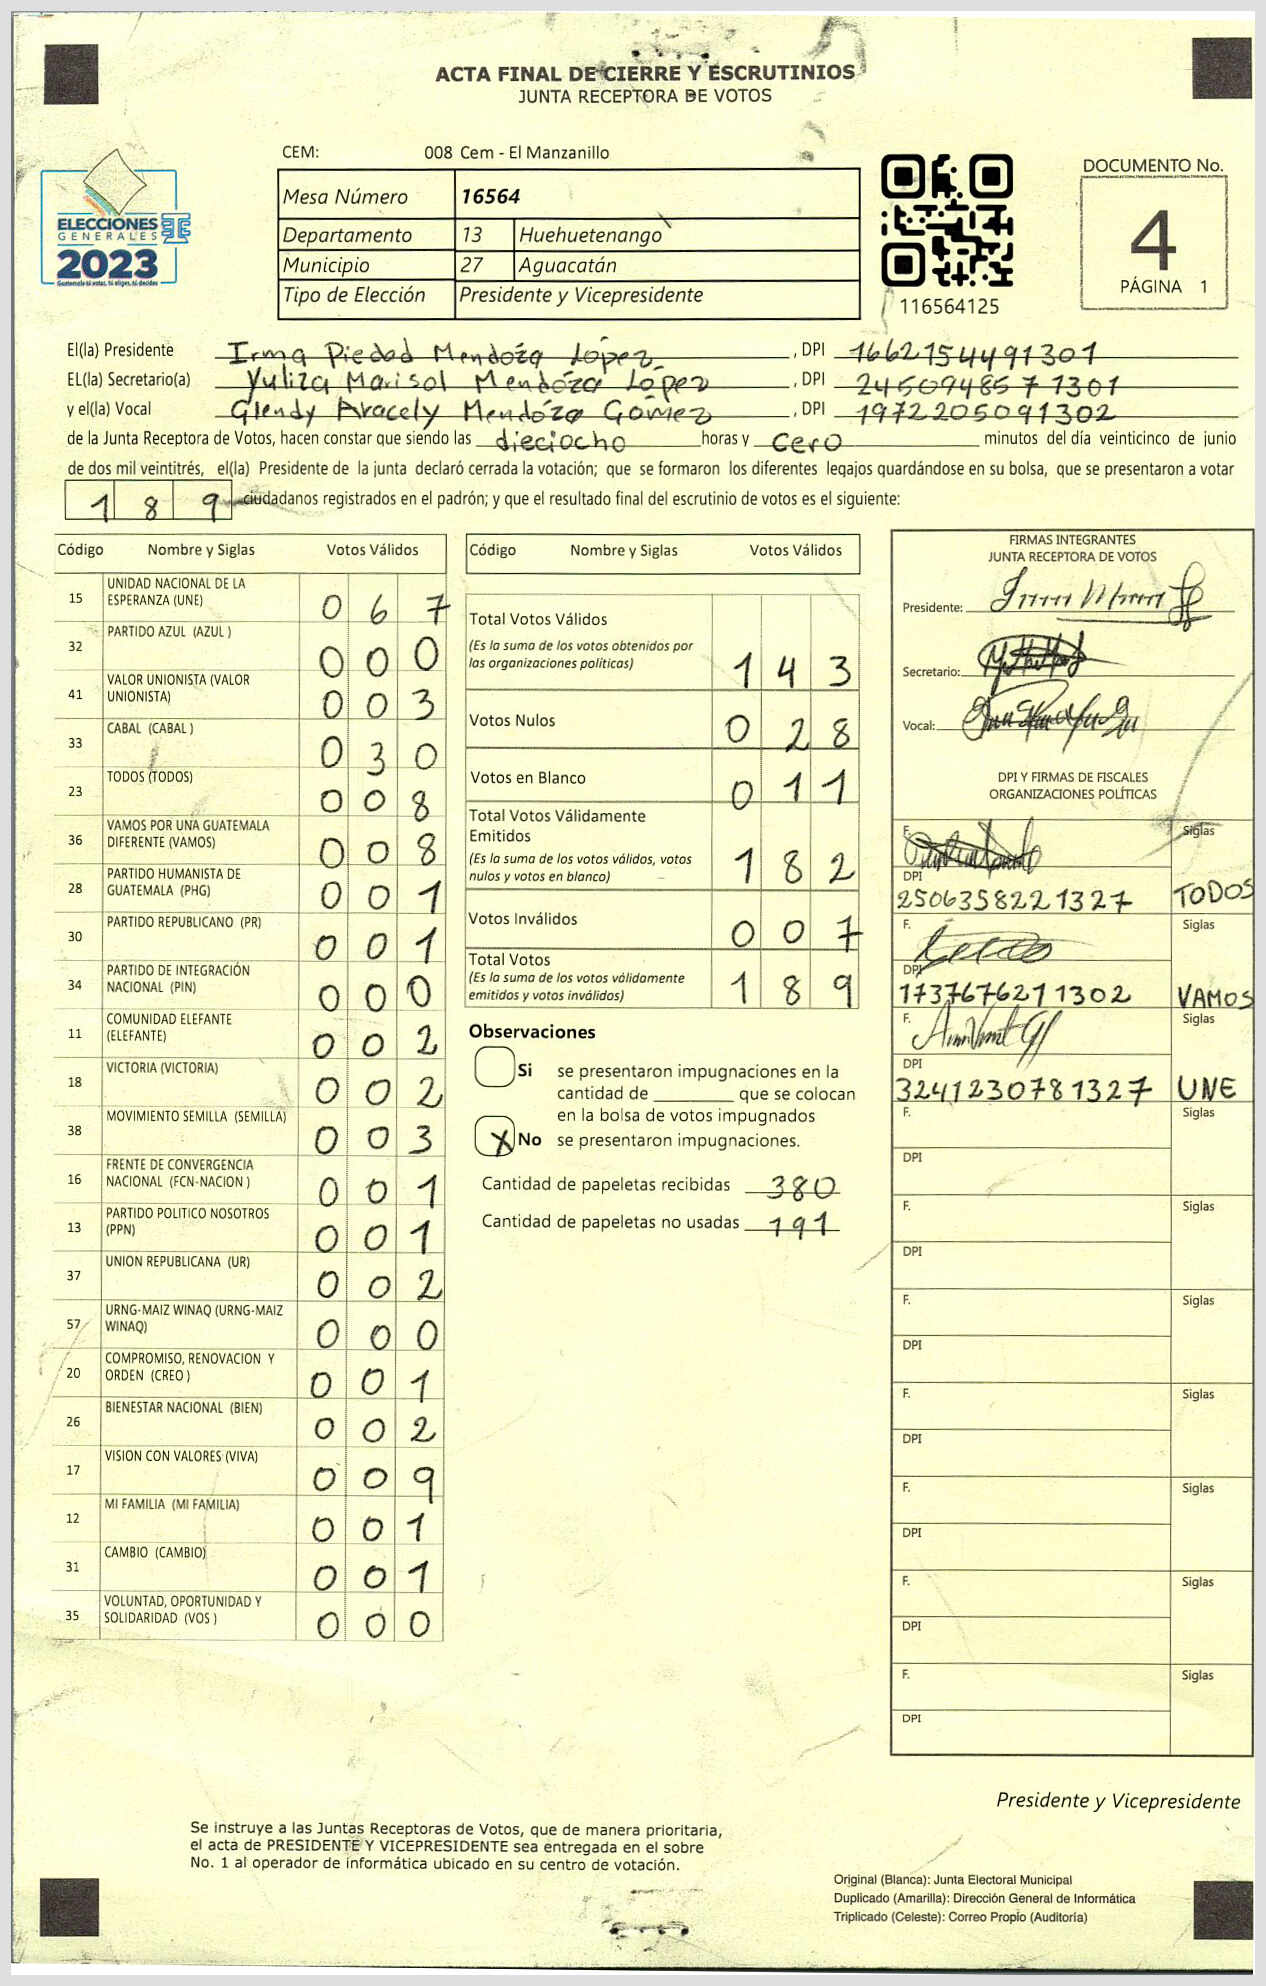 ACTA FINAL DE CIERRE Y ESCRUTINIOS
JUNTA RECEPTORA DE VOTOS
CEM: 008 Cem - El Manzanillo
Mesa Número 16564
Departamento 13 Huehuetenango
Municipio 27 Aguacatán
Tipo de Elección Presidente y Vicepresidente
ELECCIONES
GENERALES
2023
Guatemala tú votas, tú eliges, tú decides
116564125
DOCUMENTO No.
4
PÁGINA 1
El(la) Presidente Irma Piedad Mendóza López, DPI 1662154491301
EL(la) Secretario(a) Yuliza Marisol Mendóza López, DPI 2450948571301
y el(la) Vocal Glendy Aracely Mendóza Gómez, DPI 1972205091302
de la Junta Receptora de Votos, hacen constar que siendo las dieciocho horas y cero minutos del día veinticinco de junio
de dos mil veintitrés, el(la) Presidente de la junta declaró cerrada la votación; que se formaron los diferentes legajos quardándose en su bolsa, que se presentaron a votar
189 ciudadanos registrados en el padrón; y que el resultado final del escrutinio de votos es el siguiente:
Código Nombre y Siglas Votos Válidos
15 UNIDAD NACIONAL DE LA ESPERANZA (UNE) 067
32 PARTIDO AZUL (AZUL ) 000
41 VALOR UNIONISTA (VALOR UNIONISTA) 003
33 CABAL (CABAL ) 030
23 TODOS (TODOS) 008
36 VAMOS POR UNA GUATEMALA DIFERENTE (VAMOS) 008
28 PARTIDO HUMANISTA DE GUATEMALA (PHG) 001
30 PARTIDO REPUBLICANO (PR) 001
34 PARTIDO DE INTEGRACIÓN NACIONAL (PIN) 000
11 COMUNIDAD ELEFANTE (ELEFANTE) 002
18 VICTORIA (VICTORIA) 002
38 MOVIMIENTO SEMILLA (SEMILLA) 003
16 FRENTE DE CONVERGENCIA NACIONAL (FCN-NACION ) 001
13 PARTIDO POLITICO NOSOTROS (PPN) 001
37 UNION REPUBLICANA (UR) 002
57 URNG-MAIZ WINAQ (URNG-MAIZ WINAQ) 000
20 COMPROMISO, RENOVACION Y ORDEN (CREO ) 001
26 BIENESTAR NACIONAL (BIEN) 002
17 VISION CON VALORES (VIVA) 009
12 MI FAMILIA (MI FAMILIA) 001
31 CAMBIO (CAMBIO) 001
35 VOLUNTAD, OPORTUNIDAD Y SOLIDARIDAD (VOS ) 000
Código Nombre y Siglas Votos Válidos
Total Votos Válidos
(Es la suma de los votos obtenidos por
las organizaciones políticas) 143
Votos Nulos 028
Votos en Blanco 011
Total Votos Válidamente
Emitidos
(Es la suma de los votos válidos, votos
nulos y votos en blanco) 182
Votos Inválidos 007
Total Votos
(Es la suma de los votos válidamente
emitidos y votos inválidos) 189
Observaciones
Si se presentaron impugnaciones en la
cantidad de ________ que se colocan
en la bolsa de votos impugnados
X No se presentaron impugnaciones.
Cantidad de papeletas recibidas 380
Cantidad de papeletas no usadas 191
FIRMAS INTEGRANTES
JUNTA RECEPTORA DE VOTOS
Presidente:
Secretario:
Vocal:
DPI Y FIRMAS DE FISCALES
ORGANIZACIONES POLÍTICAS
F. Siglas
DPI
2506358221327 TODOS
F. Siglas
DPI
1737676211302 VAMOS
F. Siglas
DPI
3241230781327 UNE
F. Siglas
DPI
F. Siglas
DPI
F. Siglas
DPI
F. Siglas
DPI
F. Siglas
DPI
F. Siglas
DPI
F. Siglas
DPI
Presidente y Vicepresidente
Se instruye a las Juntas Receptoras de Votos, que de manera prioritaria,
el acta de PRESIDENTE Y VICEPRESIDENTE sea entregada en el sobre
No. 1 al operador de informática ubicado en su centro de votación.
Original (Blanca): Junta Electoral Municipal
Duplicado (Amarilla): Dirección General de Informática
Triplicado (Celeste): Correo Propio (Auditoría)